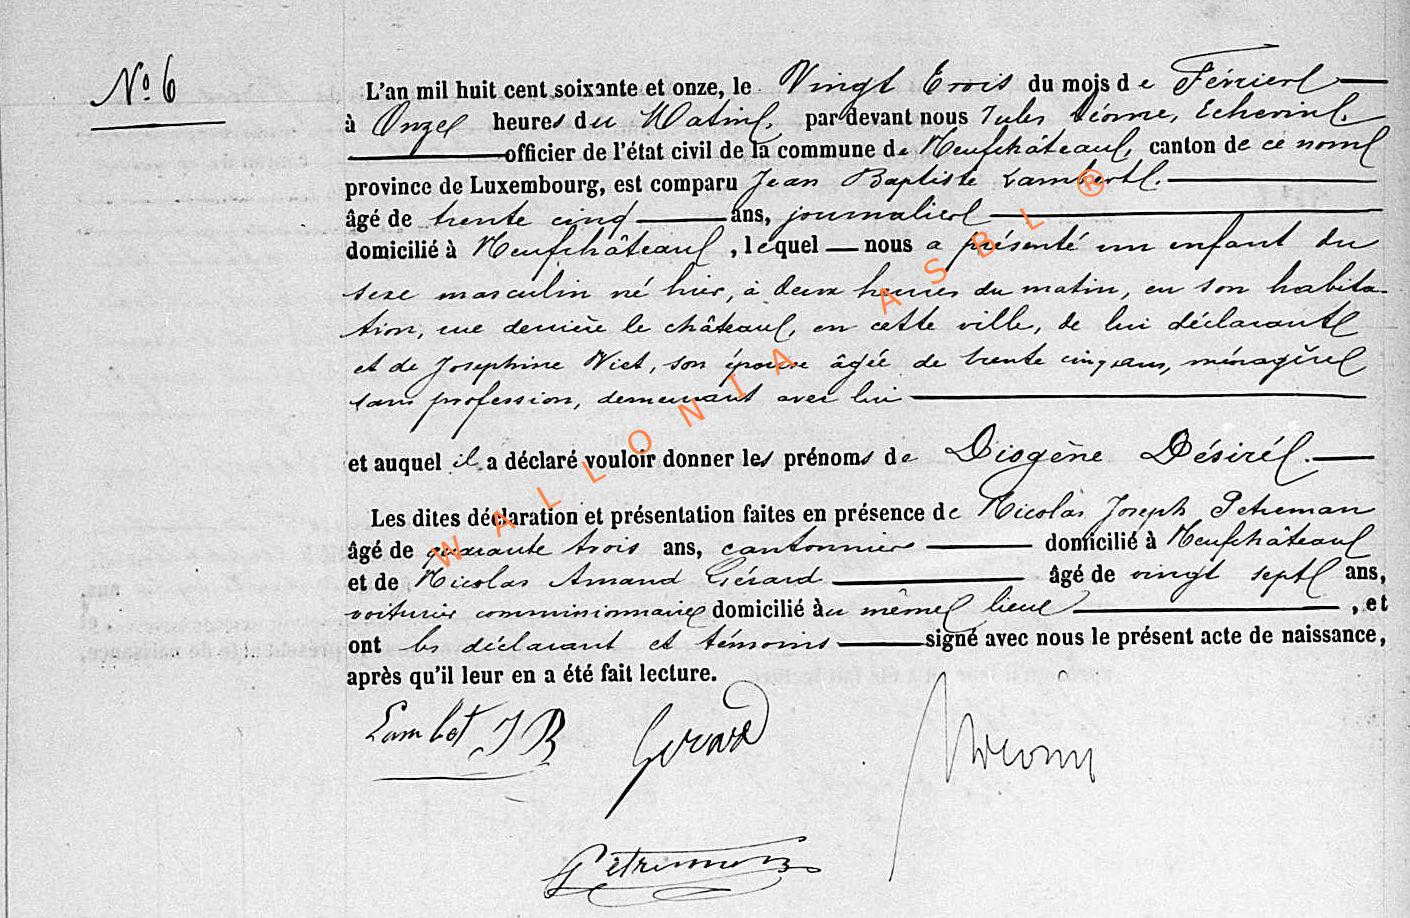 No 6
L'an mil huit cent soixante et onze, le Vingt trois du mois de Février
à Onze heures du Matin, par devant nous Jules Echevin,
officier de l'état civil de la commune de Neufchâteau, canton de ce nom
province de Luxembourg, est comparu Jean Baptiste Lambert.
âgé de trente cinq ans, journalier
domicilié à Neufchâteau, lequel nous a présenté un enfant du
sexe masculin né hier, à deux heures du matin, en son habita-
tion, rue derrière le château, en cette ville, de lui déclarant
et de Josephine Wiet, son épouse âgée de trente cinq ans, ménagère
sans profession, demeurant avec lui
et auquel il a déclaré vouloir donner les prénoms de Diogène Désiré.
Les dites déclaration et présentation faites en présence de Nicolas Joseph Petreman
âgé de quarante trois ans, cantonnier domicilié à Neufchâteau
et de Nicolas Amand Gérard âgé de vingt sept ans,
voiturier commissionnaire domicilié au même lieu, et
ont les déclarant et témoins signé avec nous le présent acte de naissance,
après qu'il leur en a été fait lecture.
Lambet J B Gerard
Petremen
WALLONIA ASBL ®